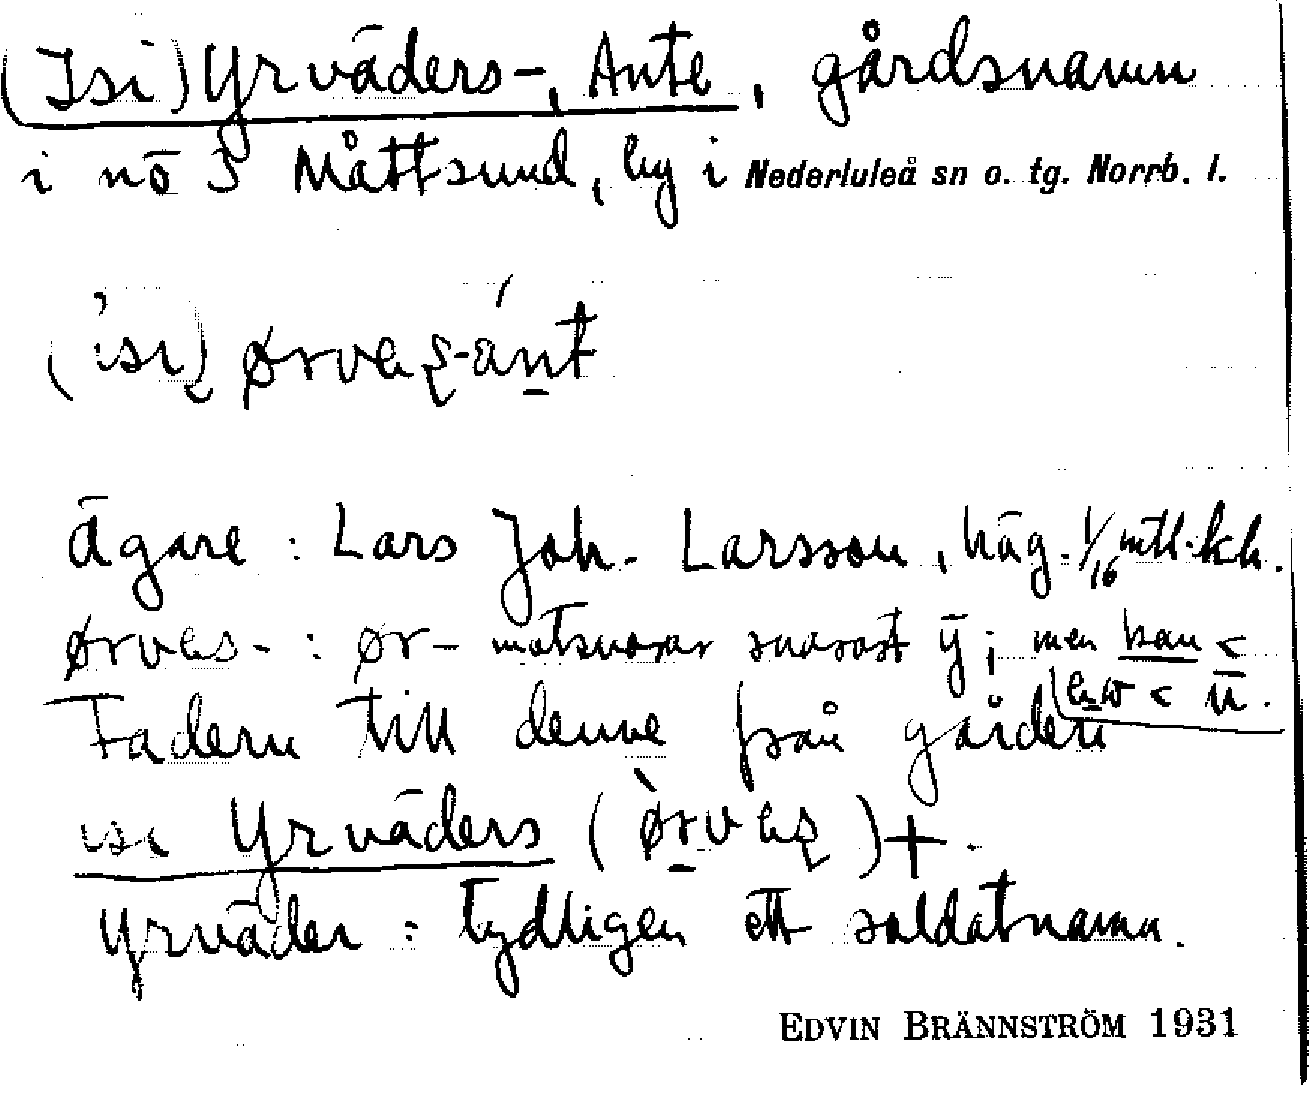 (Isi) Yrväders-, Ante, gårdsnamn
i nö 3 Måttsund, by i Nederluleå sn o. tg. Norrb. l.
Ägare : Lars Joh. Larsson, häg. 1/16 mtl. kh.
ør- motsvarar snarast ÿ; men kan <
Fadern till denne från gården
isi Yrväders
Yrväder : tydligen ett soldatnamn.
EDVIN BRÄNNSTRÖM 1931